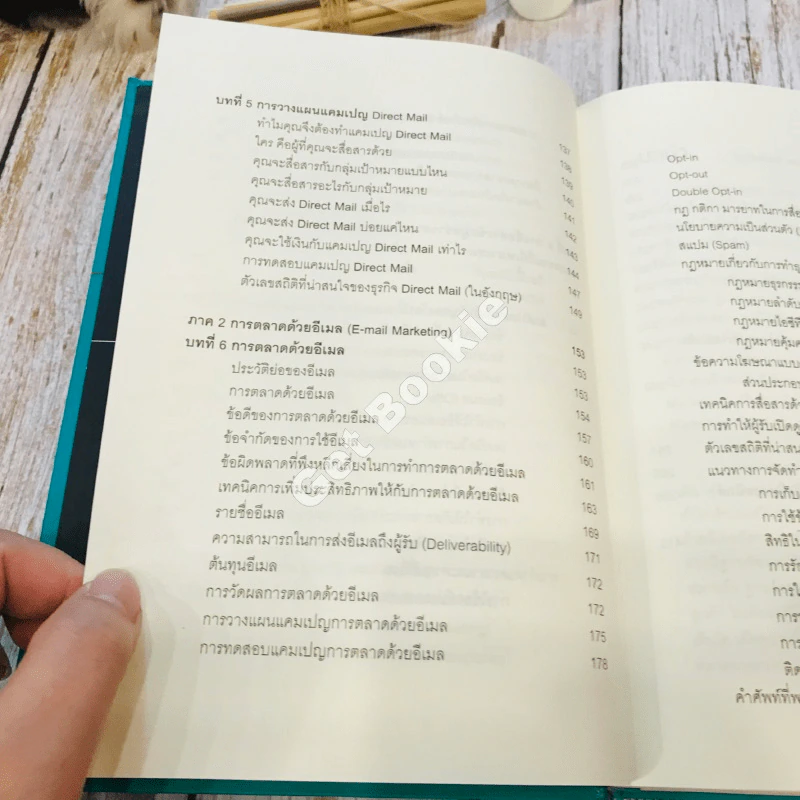 บทที่ 5 การวางแผนแคมเปญ Direct Mail 137
ทำไมคุณจึงต้องทำแคมเปญ Direct Mail 138
ใคร คือผู้ที่คุณจะสื่อสารด้วย 139
คุณจะสื่อสารกับกลุ่มเป้าหมายแบบไหน 140
คุณจะสื่อสารอะไรกับกลุ่มเป้าหมาย 141
คุณจะส่ง Direct Mail เมื่อไร 142
คุณจะส่ง Direct Mail บ่อยแค่ไหน 143
คุณจะใช้เงินกับแคมเปญ Direct Mail เท่าไร 144
การทดสอบแคมเปญ Direct Mail 147
ตัวเลขสถิติที่น่าสนใจของธุรกิจ Direct Mail (ในอังกฤษ) 149
ภาค 2 การตลาดด้วยอีเมล (E-mail Marketing)
บทที่ 6 การตลาดด้วยอีเมล 153
ประวัติย่อของอีเมล 153
การตลาดด้วยอีเมล 153
ข้อดีของการตลาดด้วยอีเมล 154
ข้อจำกัดของการใช้อีเมล 157
ข้อผิดพลาดที่พึงหลีกเลี่ยงในการทำการตลาดด้วยอีเมล 160
เทคนิคการเพิ่มประสิทธิภาพให้กับการตลาดด้วยอีเมล 161
รายชื่ออีเมล 163
ความสามารถในการส่งอีเมลถึงผู้รับ (Deliverability) 169
ต้นทุนอีเมล 171
การวัดผลการตลาดด้วยอีเมล 172
การวางแผนแคมเปญการตลาดด้วยอีเมล 172
การทดสอบแคมเปญการตลาดด้วยอีเมล 175
178
Get Bookie
Opt-in
Opt-out
Double Opt-in
กฎ กติกา มารยาทในการสื่อ
นโยบายความเป็นส่วนตัว (
สแปม (Spam)
กฎหมายเกี่ยวกับการทำธุ
กฎหมายธุรกรร
กฎหมายลำดับ
กฎหมายไอซีที
กฎหมายคุ้มค
ข้อความโฆษณาแบบ
ส่วนประกอ
เทคนิคการสื่อสารด้
การทำให้ผู้รับเปิดดู
ตัวเลขสถิติที่น่าสน
แนวทางการจัดทำ
การเก็บ
การใช้ข้
สิทธิใน
การรัก
การใ
การ
การ
ติด
คำศัพท์ที่พ